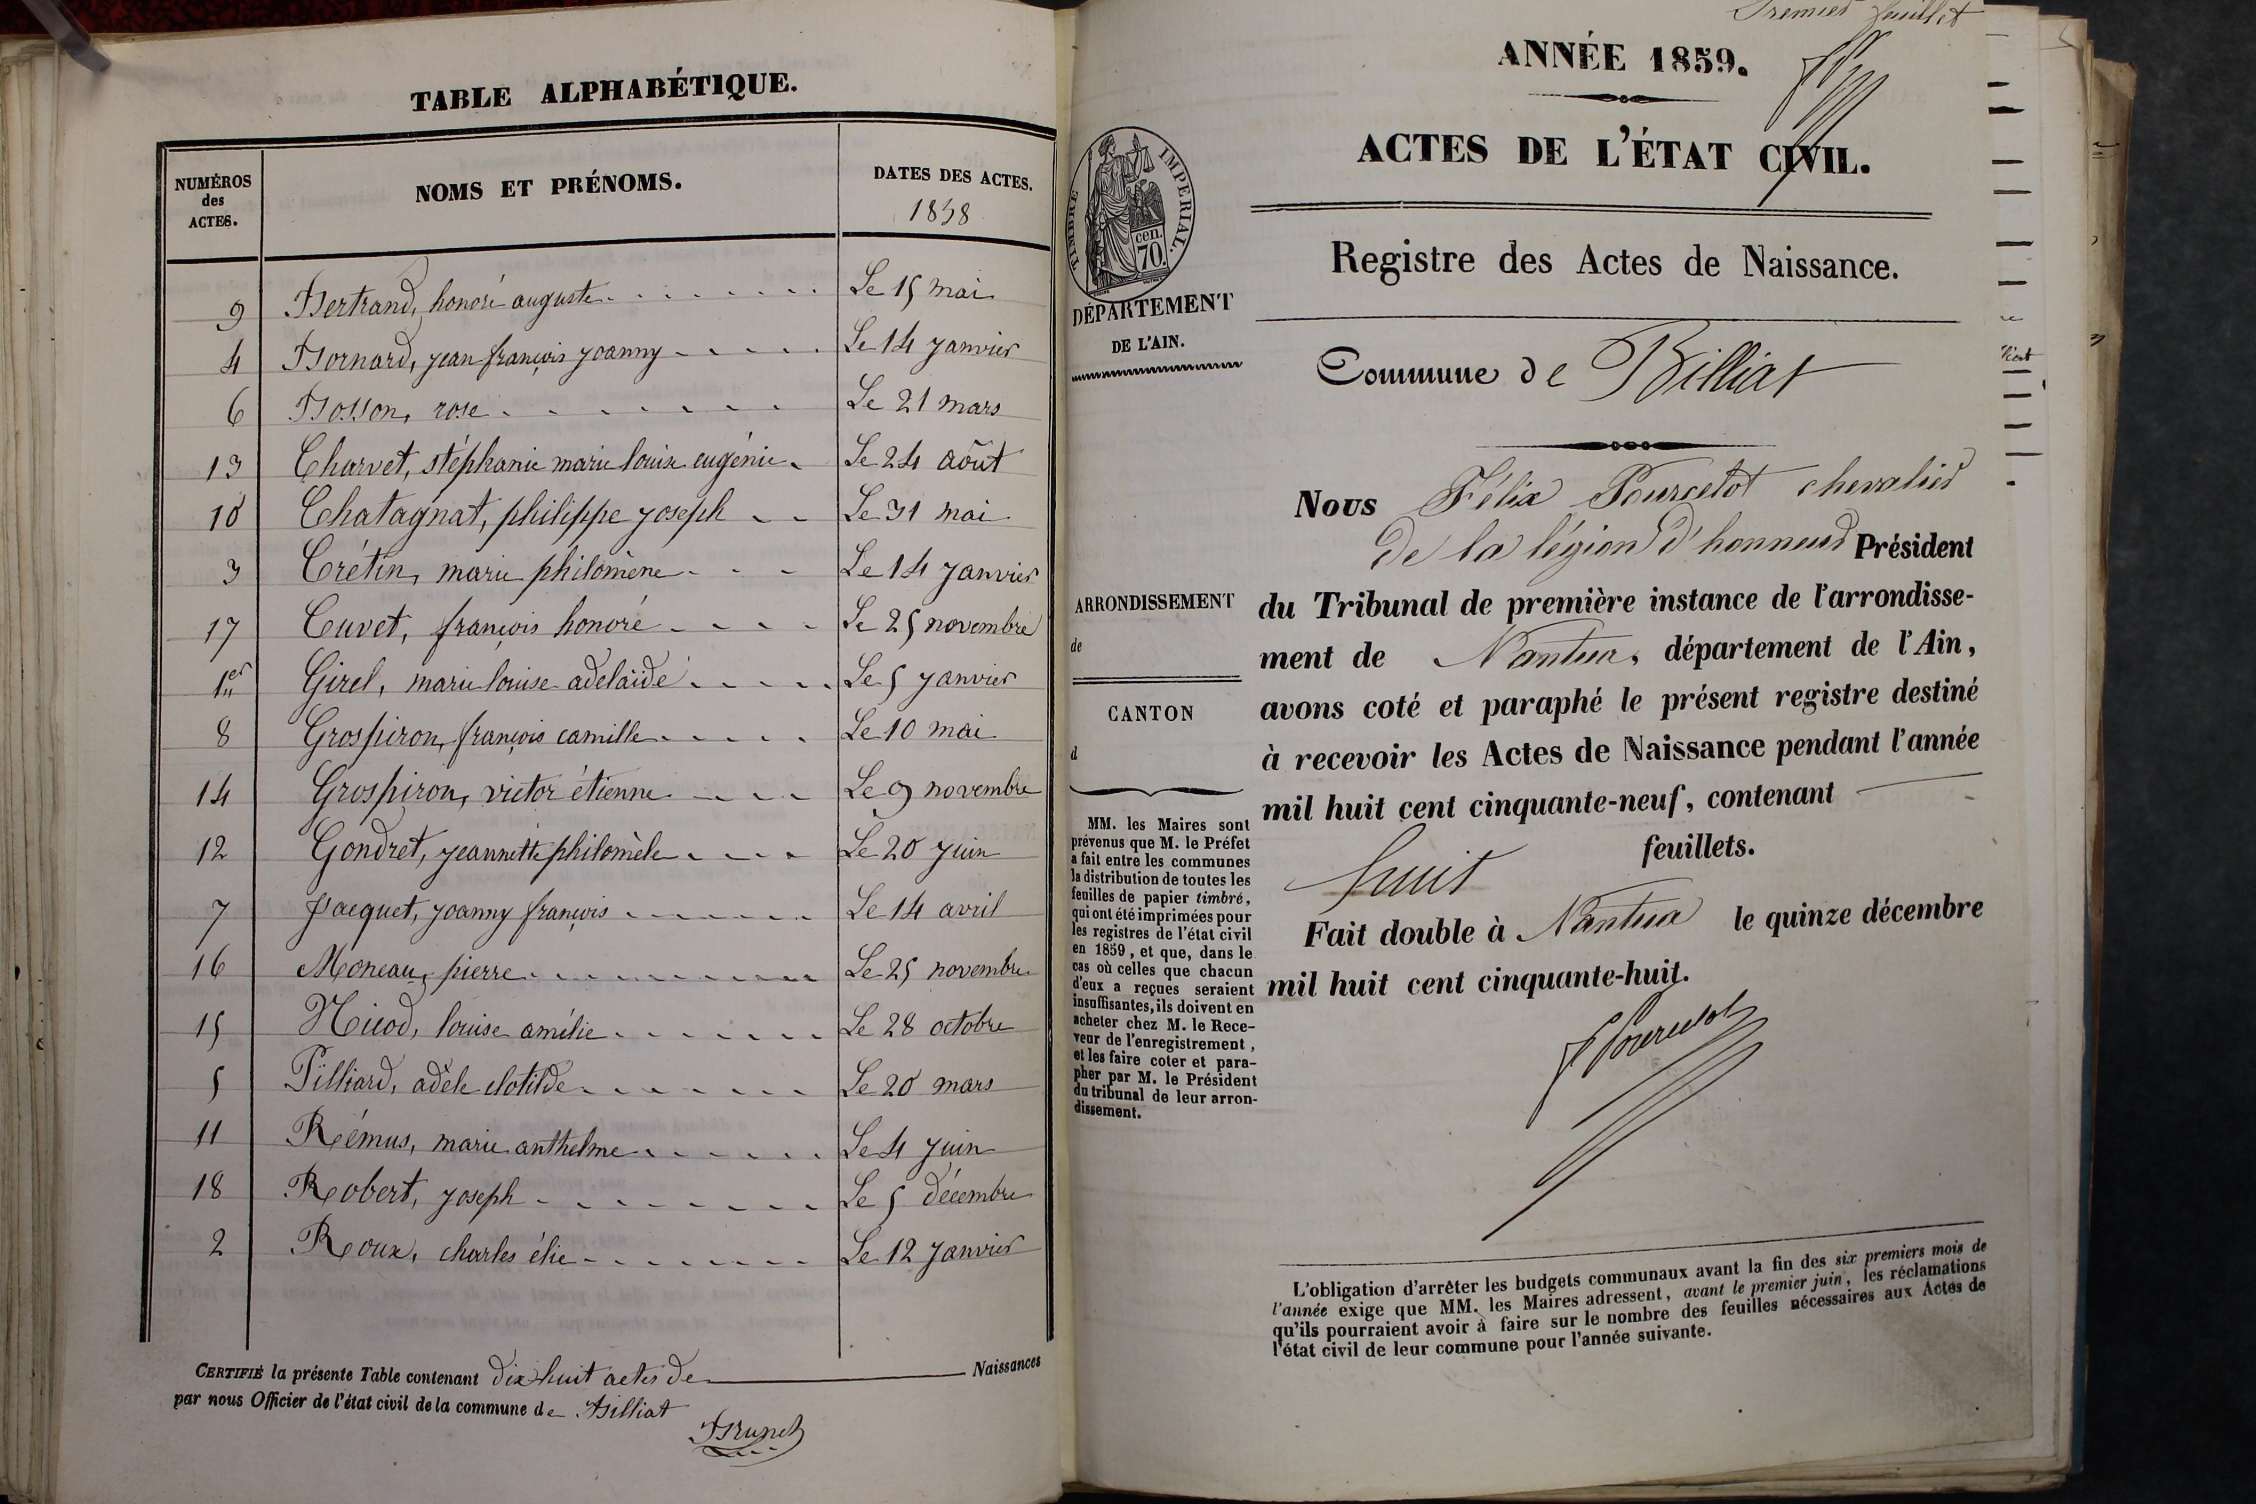 TABLE ALPHABÉTIQUE.
NUMÉROS des ACTES. NOMS ET PRÉNOMS. DATES DES ACTES. 1858
9 Bertrand, honoré auguste Le 15 mai
4 Bornard, jean françois joanny Le 14 janvier
6 Bosson, rose Le 21 mars
13 Charvet, stéphanie marie louise eugénie Le 24 août
10 Chatagnat, philippe joseph Le 31 mai
3 Crétin, marie philomène Le 14 janvier
17 Cuvet, françois honoré Le 25 novembre
1er Girel, marie louise adelaïde Le 5 janvier
8 Grospiron, françois camille Le 10 mai
14 Grospiron, victor étienne Le 9 novembre
12 Gondret, jeannette philomèle Le 20 juin
7 Jacquet, joanny françois Le 14 avril
16 Moneau, pierre Le 25 novembre
15 Nicod, louise amélie Le 28 octobre
5 Pilliard, adèle clotilde Le 20 mars
11 Rémus, marie anthelme Le 4 juin
18 Robert, joseph Le 5 décembre
2 Roux, charles élie Le 12 janvier
CERTIFIÉ la présente Table contenant dix huit actes de Naissances
par nous Officier de l'état civil de la commune de Billiat
Brunet
Premier feuillet
ANNÉE 1859.
ACTES DE L'ÉTAT CIVIL.
TIMBRE IMPERIAL.
cen.
70.
DÉPARTEMENT
DE L'AIN.
ARRONDISSEMENT
de
CANTON
d
MM. les Maires sont
prévenus que M. le Préfet
a fait entre les communes
la distribution de toutes les
feuilles de papier timbré,
qui ont été imprimées pour
les registres de l'état civil
en 1859, et que, dans le
cas où celles que chacun
d'eux a reçues seraient
insuffisantes, ils doivent en
acheter chez M. le Rece-
veur de l'enregistrement,
et les faire coter et para-
pher par M. le Président
du tribunal de leur arron-
dissement.
Registre des Actes de Naissance.
Commune de Billiat
Nous Félix Pourcelot chevalier
de la légion d'honneur Président
du Tribunal de première instance de l'arrondisse-
ment de Nantua, département de l'Ain,
avons coté et paraphé le présent registre destiné
à recevoir les Actes de Naissance pendant l'année
mil huit cent cinquante-neuf, contenant
huit feuillets.
Fait double à Nantua le quinze décembre
mil huit cent cinquante-huit.
F Pourcelot
L'obligation d'arrêter les budgets communaux avant la fin des six premiers mois de
l'année exige que MM. les Maires adressent, avant le premier juin, les réclamations
qu'ils pourraient avoir à faire sur le nombre des feuilles nécessaires aux Actes de
l'état civil de leur commune pour l'année suivante.